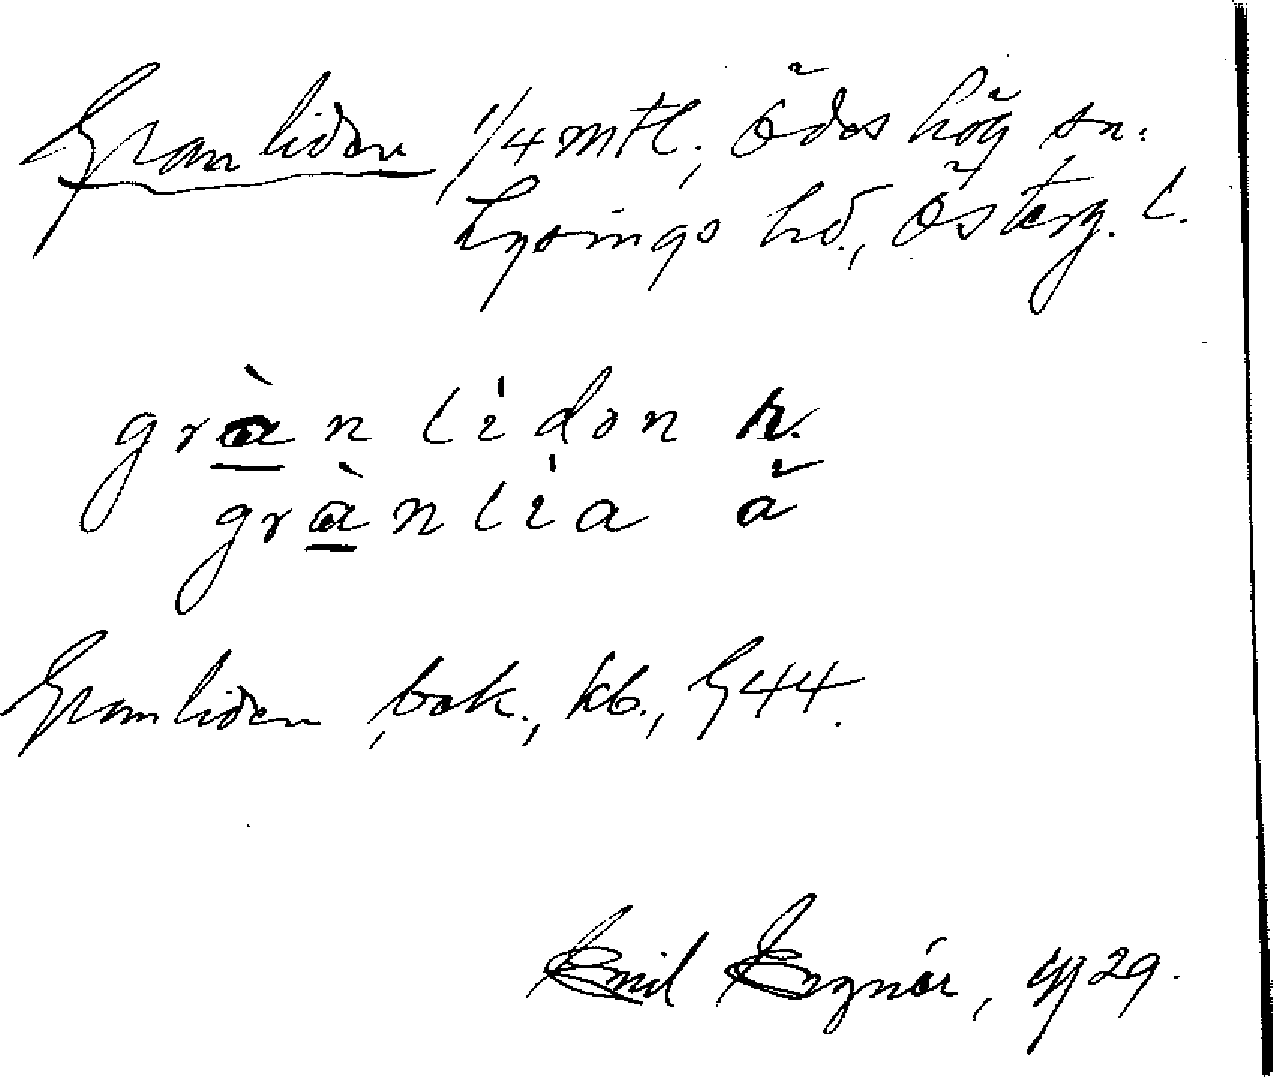 Granliden, 1/4 mtl., Ödeshög sn.
Lysings hd., Österg. l.
gràn lídən h.
grànlía ä
Granliden, bok., kb., 1944.
Emil Eegnér, 1929.